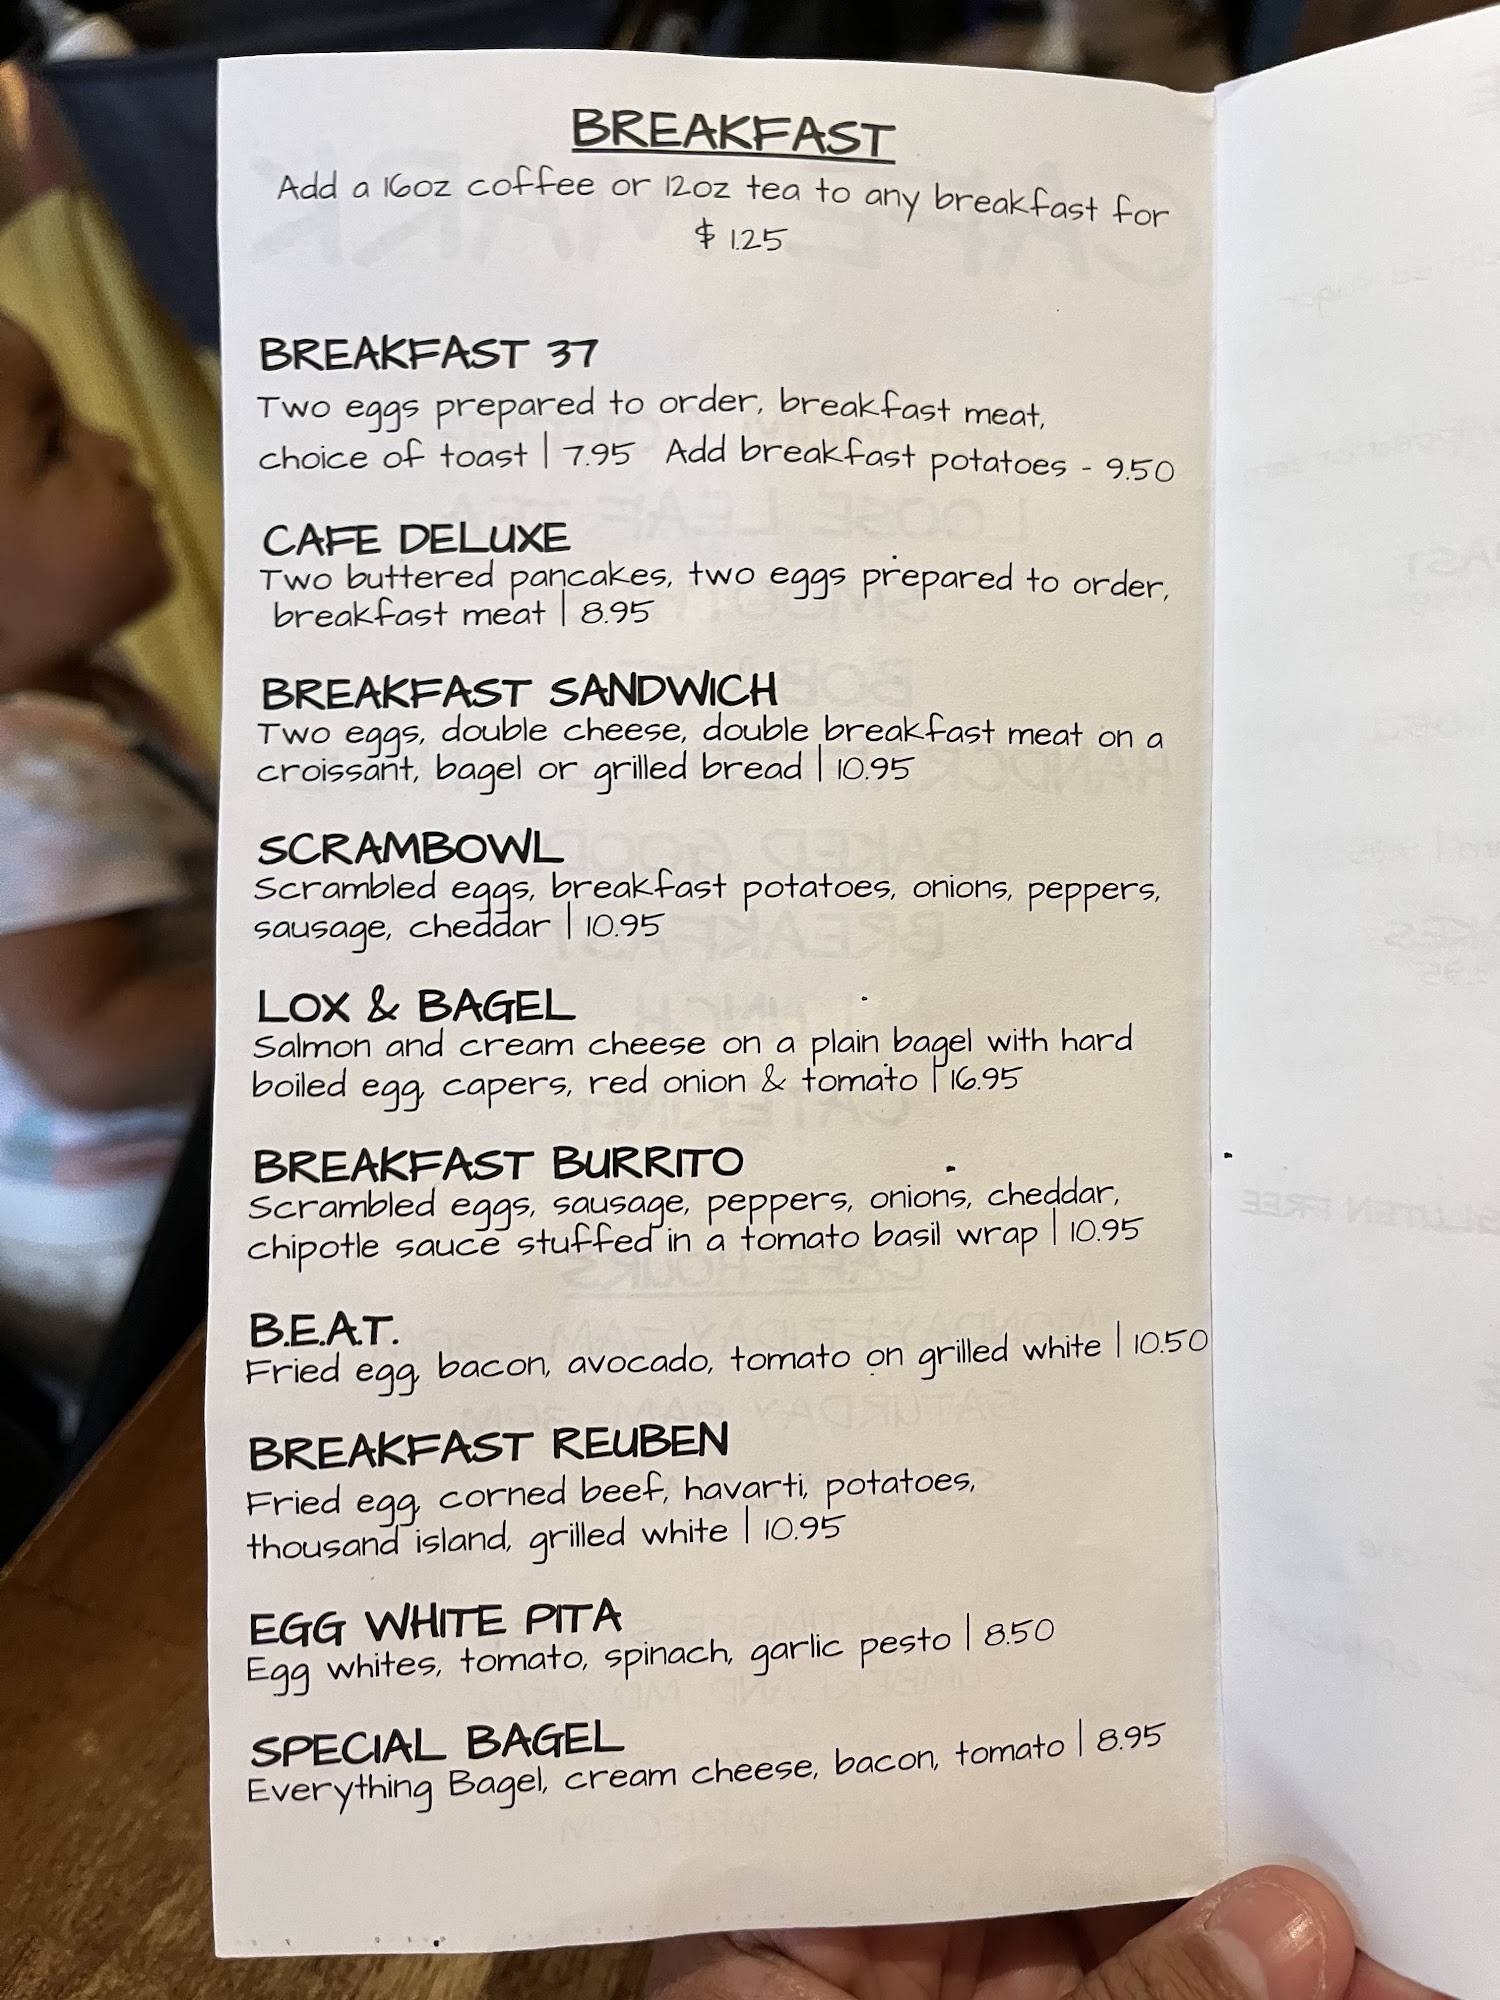 BREAKFAST
Add a 16oz coffee or 12oz tea to any breakfast for
$ 1.25
BREAKFAST 37
Two eggs prepared to order, breakfast meat,
choice of toast | 7.95 Add breakfast potatoes - 9.50
CAFE DELUXE
Two buttered pancakes, two eggs prepared to order,
breakfast meat | 8.95
BREAKFAST SANDWICH
Two eggs, double cheese, double breakfast meat on a
croissant, bagel or grilled bread | 10.95
SCRAMBOWL
Scrambled eggs, breakfast potatoes, onions, peppers,
sausage, cheddar | 10.95
LOX & BAGEL
Salmon and cream cheese on a plain bagel with hard
boiled egg, capers, red onion & tomato | 16.95
BREAKFAST BURRITO
Scrambled eggs, sausage, peppers, onions, cheddar,
chipotle sauce stuffed in a tomato basil wrap | 10.95
B.E.A.T.
Fried egg, bacon, avocado, tomato on grilled white | 10.50
BREAKFAST REUBEN
Fried egg, corned beef, havarti, potatoes,
thousand island, grilled white | 10.95
EGG WHITE PITA
Egg whites, tomato, spinach, garlic pesto | 8.50
SPECIAL BAGEL
Everything Bagel, cream cheese, bacon, tomato | 8.95